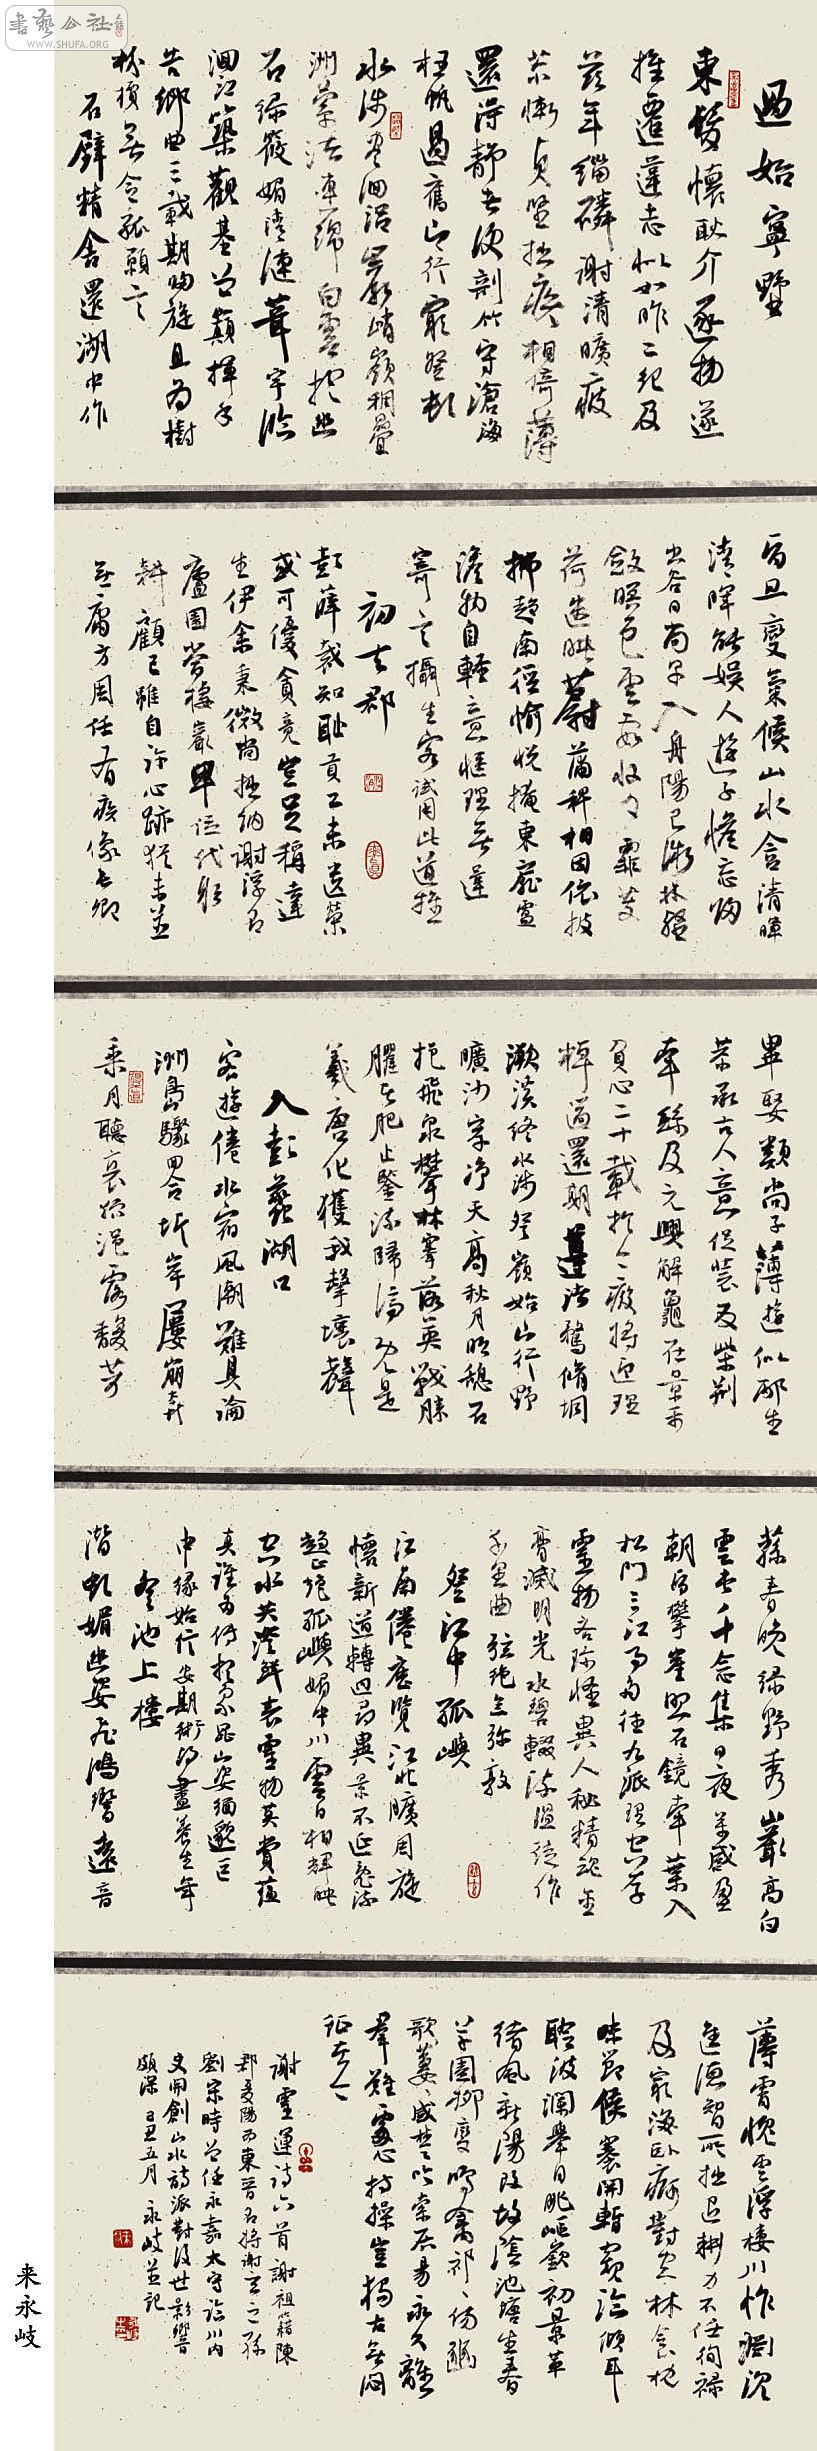 書藝公社
WWW.SHUFA.ORG
過始寧墅
束髮懷耿介逐物遂
推遷違志似如昨二紀及
茲年緇磷謝清曠疲
薾慚貞堅拙疾相倚薄
還得靜者便剖竹守滄海
枉帆過舊山山行窮登頓
水涉盡洄沿巖峭嶺稠疊
洲縈渚連綿白雲抱幽
石綠篠媚清漣葺宇臨
迴江築觀基曾巔揮手
告鄉曲三載期歸旋且為樹
枌檟無令孤願言
石壁精舍還湖中作
昏旦變氣候山水含清暉
清暉能娛人遊子憺忘歸
出谷日尚早入舟陽已微林壑
斂暝色雲霞收夕霏芰
荷迭映蔚蒲稗相因依披
拂趨南徑愉悅掩東扉慮
澹物自輕意愜理無違
寄言攝生客試用此道推
初去郡
彭薛裁知恥貢公未遺榮
或可優貪競豈足稱達
生伊余秉微尚拙訥謝浮名
廬園當棲巖卑位代躬
耕顧己雖自許心跡猶未並
無庸方周任有疾像長卿
畢娶類尚子薄遊似邴生
恭承古人意促裝反柴荊
牽絲及元興解龜在景平
負心二十載於今廢將迎理
棹遄還期遵渚騖脩坰
溯溪終水涉登嶺始山行野
曠沙岸淨天高秋月明憩石
挹飛泉攀林搴落英戰勝
臞者肥止鑒流歸停即是
羲唐化獲我擊壤聲
入彭蠡湖口
客遊倦水宿風潮難具論
洲島驟回合圻岸屢崩奔
乘月聽哀狖浥露馥芳
蓀春晚綠野秀巖高白
雲屯千念集日夜萬感盈
朝昏攀崖照石鏡牽葉入
松門三江事多往九派理空存
靈物吝珍怪異人秘精魂金
膏滅明光水碧輟流溫徒作
千里曲弦絕念彌敦
登江中孤嶼
江南倦歷覽江北曠周旋
懷新道轉迴尋異景不延亂流
趨正絕孤嶼媚中川雲日相輝映
空水共澄鮮表靈物莫賞蘊
真誰為傳想象昆山姿緬邈區
中緣始信安期術得盡養生年
登池上樓
潛虬媚幽姿飛鴻響遠音
薄霄愧雲浮棲川怍淵沉
進德智所拙退耕力不任徇祿
及窮海臥痾對空林衾枕
昧節候褰開暫窺臨傾耳
聆波瀾舉目眺嶇嶔初景革
緒風新陽改故陰池塘生春
草園柳變鳴禽祁祁傷豳
歌萋萋感楚吟索居易永久離
群難處心持操豈獨古無悶
征在今
謝靈運詩六首謝祖籍陳
郡夏陽為東晉名將謝玄之孫
劉宋時曾任永嘉太守臨川內
史開創山水詩派對後世影響
頗深己丑五月永岐並記
来永岐